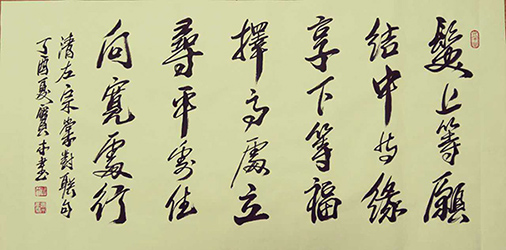 髮上等願
結中等緣
享下等福
擇高處立
尋平處住
向寬處行
清左宗棠對聯句
丁酉夏